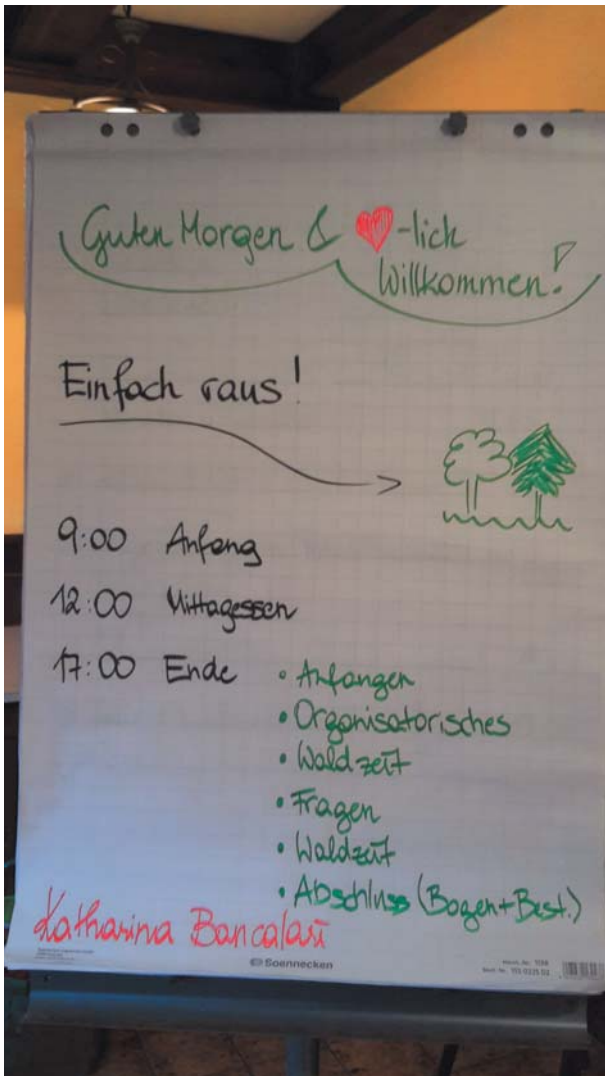 Guten Morgen & ♥-lich
Willkommen!
Einfach raus!
9:00 Anfang
12:00 Mittagessen
17:00 Ende
• Anfangen
• Organisatorisches
• Waldzeit
• Fragen
• Waldzeit
• Abschluss (Bogen+Best.)
Katharina Bancalari
Soennecken